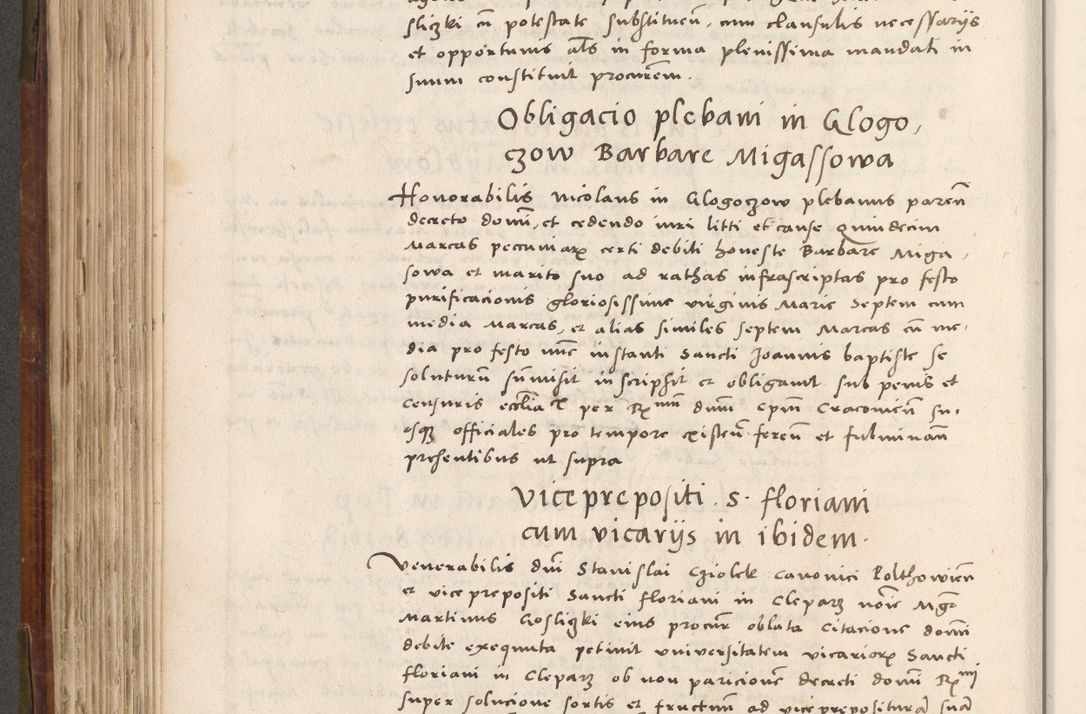 sliczki cū potestate substituen̄, cum clausulis necessarijs
et opportunis al̄s in forma plenissima mandati in
suum constituit procurem̄.
Obligacio plebani in Glogo,
czow Barbare Migassowa
Honorabilis Nicolaus in Glogoczow plebanus paren̄
decreto domi̅, et cedendo iuri litti et cause quindecim
Marcas pecuniarꝝ certi debiti honeste Barbare Miga,
sowa et marito suo ad rathas infrascriptas pro festo
purificacionis gloriosissime virginis Marie septem cum
media Marcas, et alias similes septem Marcas cū me,
dia pro festo nūc instanti Sancti Joannis baptiste se
soluturū su̅misit inscripsit et obligauit sub penis et
Censuris eccl̄ia per Rmum dn̄m Ep̄m Cracovien̄ su,
osqꝫ officiales pro tempore existen̄ feren̄ et fulminan̄
presentibus ut supra
Vice prepositi S. Floriani
cum vicarijs in ibidem.
Venerabilis dn̄i Stanislai Cziolek Canonici Polthowien̄
et vice prepositi Sancti Floriani in Clepar₃ no̅ie Mgr̄
Martinus Gosliczki eius procur̄ oblata Citacione domi̅
debite exequuta petiuit universitatem vicariorꝝ Sancti
Floriani in Clepar₃ ob non paricionē decreti domi̅ Rmi
super solucione sortis et fructuum ad vice preposituram suam